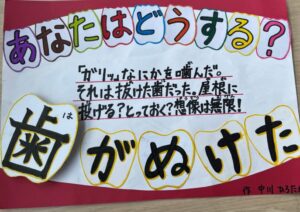 あなたはどうする?
「ガリッ」なにかを噛んだ。
それは抜けた歯だった。屋根に
投げる?とっておく?想像は無限!
歯は
がぬけた
作 中川 ひろたか